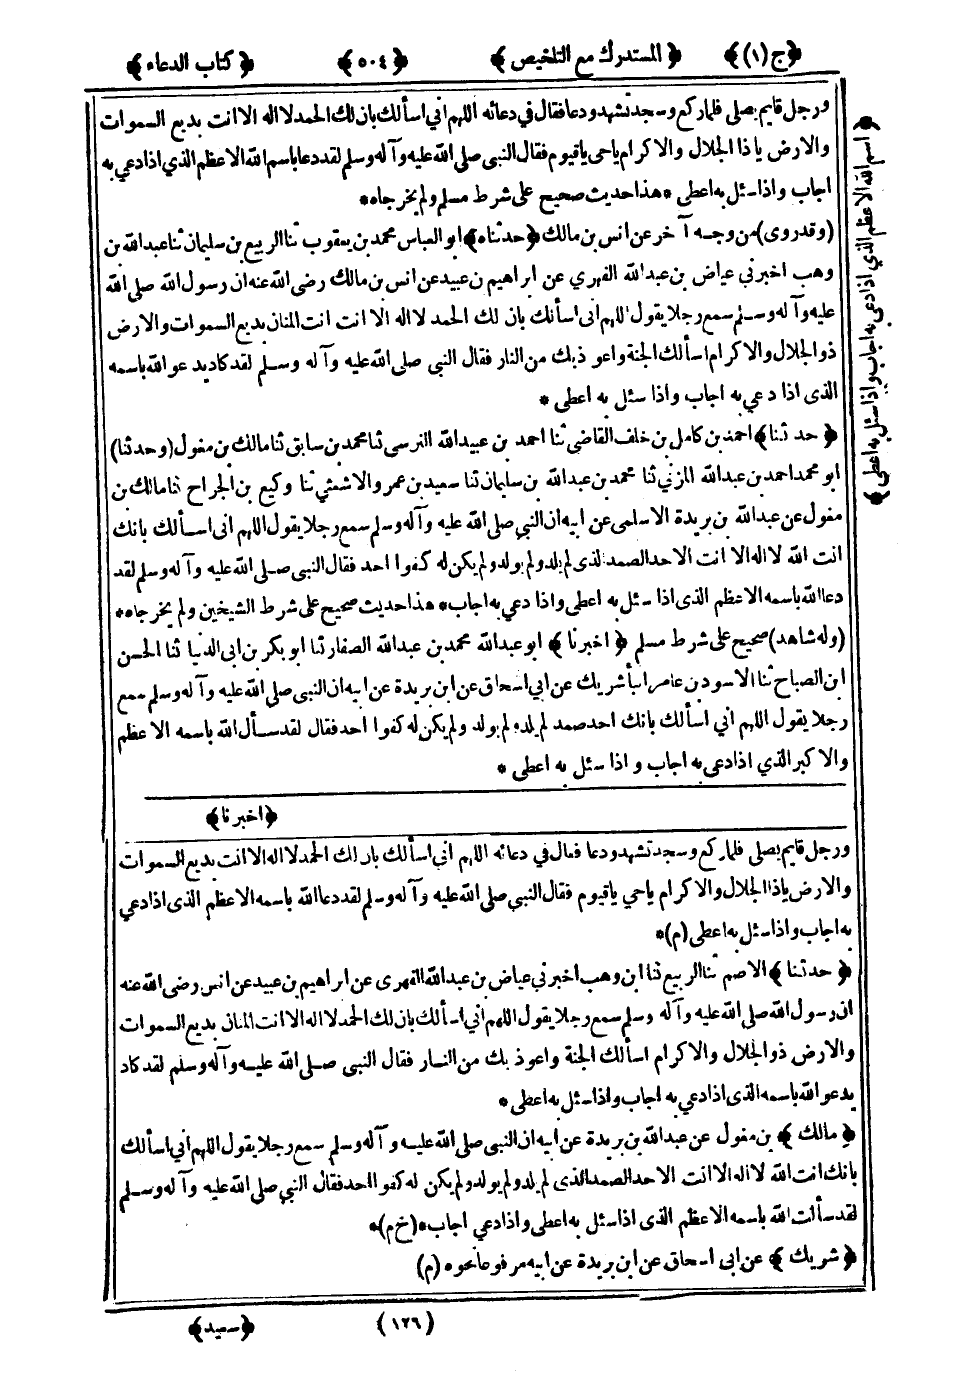 ﴿ج(١)﴾ ﴿المستدرك مع التلخيص﴾ ﴿٥٠٤﴾ ﴿كتاب الدعاء﴾
ورجل قايم يصلى فلما ركع وسجد تشهد ودعا فقال في دعائه اللهم اني اسألك بان لك الحمد لا اله الا انت بديع السموات
والارض ياذا الجلال والاكرام ياحى ياقيوم فقال النبى صلى الله عليه وآله وسلم لقد دعا باسم الله الاعظم الذي اذا دعي به
اجاب واذا سئل به اعطى * هذا حديث صحيح على شرط مسلم ولم يخرجاه *
(وقد روى) من وجه آخر عن انس بن مالك ﴿حدثناه﴾ ابو العباس محمد بن يعقوب ثنا الربيع بن سليمان ثنا عبد الله بن
وهب اخبرني عياض بن عبد الله الفهري عن ابراهيم بن عبيد عن انس بن مالك رضى الله عنه ان رسول الله صلى الله
عليه وآله وسلم سمع رجلا يقول اللهم انى اسألك بان لك الحمد لا اله الا انت انت المنان بديع السموات والارض
ذو الجلال والاكرام اسألك الجنة واعوذ بك من النار فقال النبى صلى الله عليه وآله وسلم لقد كاد يدعو الله باسمه
الذى اذا دعي به اجاب واذا سئل به اعطى *
﴿حدثنا﴾ احمد بن كامل بن خلف القاضي ثنا احمد بن عبيد الله النرسى ثنا محمد بن سابق ثنا مالك بن مغول (وحدثنا)
ابو محمد احمد بن عبد الله المزني ثنا محمد بن عبد الله بن سليمان ثنا سعيد بن عمر والاشعثي ثنا وكيع بن الجراح ثنا مالك بن
مغول عن عبد الله بن بريدة الاسلمى عن ابيه ان النبي صلى الله عليه وآله وسلم سمع رجلا يقول اللهم انى اسألك بانك
انت الله لا اله الا انت الاحد الصمد الذى لم يلد ولم يولد ولم يكن له كفوا احد فقال النبى صلى الله عليه وآله وسلم لقد
دعا الله باسمه الاعظم الذى اذا سئل به اعطى واذا دعي به اجاب * هذا حديث صحيح على شرط الشيخين ولم يخرجاه *
(وله شاهد) صحيح على شرط مسلم ﴿اخبرنا﴾ ابو عبد الله محمد بن عبد الله الصفار ثنا ابو بكر بن ابى الدنيا ثنا الحسن
ابن الصباح ثنا الاسود بن عامر انبأ شريك عن ابي اسحاق عن ابن بريدة عن ابيه ان النبى صلى الله عليه وآله وسلم سمع
رجلا يقول اللهم اني اسألك بانك احد صمد لم يلد ولم يولد ولم يكن له كفوا احد فقال لقد سأل الله باسمه الاعظم
والاكبر الذي اذا دعى به اجاب واذا سئل به اعطى *
﴿اخبرنا﴾
ورجل قايم يصلى فلما ركع وسجد تشهد ودعا فقال في دعائه اللهم انى اسألك بان لك الحمد لا اله الا انت بديع السموات
والارض ياذا الجلال والاكرام ياحي ياقيوم فقال النبي صلى الله عليه وآله وسلم لقد دعا الله باسمه الاعظم الذى اذا دعي
به اجاب واذا سئل به اعطى (م) *
﴿حدثنا﴾ الاصم ثنا الربيع ثنا ابن وهب اخبرني عياض بن عبد الله الفهرى عن ابراهيم بن عبيد عن انس رضى الله عنه
ان رسول الله صلى الله عليه وآله وسلم سمع رجلا يقول اللهم أني اسألك بان لك الحمد لا اله الا انت المنان بديع السموات
والارض ذو الجلال والاكرام اسألك الجنة واعوذ بك من النار فقال النبى صلى الله عليه وآله وسلم لقد كاد
يدعو الله باسمه الذى اذا دعي به اجاب واذا سئل به اعطى *
﴿مالك﴾ بن مغول عن عبد الله بن بريدة عن ابيه ان النبى صلى الله عليه وآله وسلم سمع رجلا يقول اللهم أني اسألك
بانك انت الله لا اله الا انت الاحد الصمد الذى لم يلد ولم يولد ولم يكن له كفوا احد فقال النبي صلى الله عليه وآله وسلم
لقد سألت الله باسمه الاعظم الذى اذا سئل به اعطى واذا دعي اجاب * (خ م) *
﴿شريك﴾ عن ابى اسحاق عن ابن بريدة عن ابيه مرفوعا نحوه (م)
(١٢٦) ﴿سعيد﴾
﴿اسم الله الاعظم الذي اذا دعى به اجاب واذا سئل به اعطى﴾